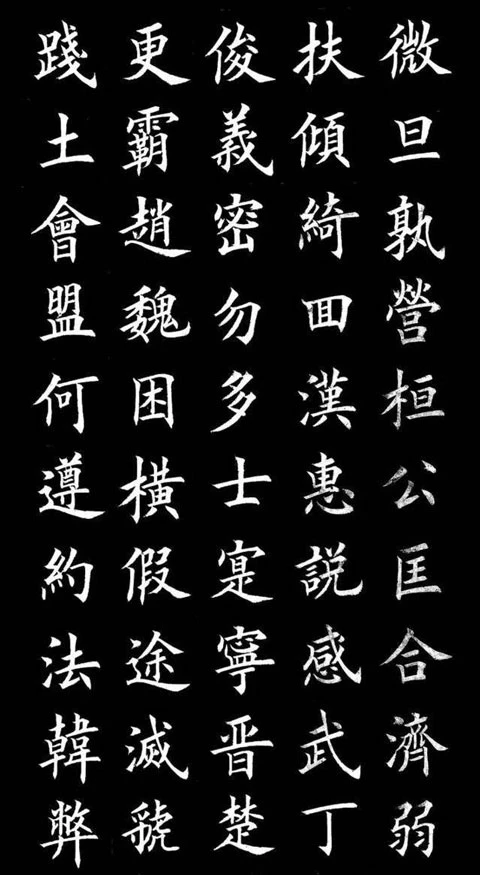 微旦孰營桓公匡合濟弱
扶傾綺回漢惠説感武丁
俊義密勿多士寔寧晋楚
更霸趙魏困橫假途滅虢
踐土會盟何遵約法韓弊